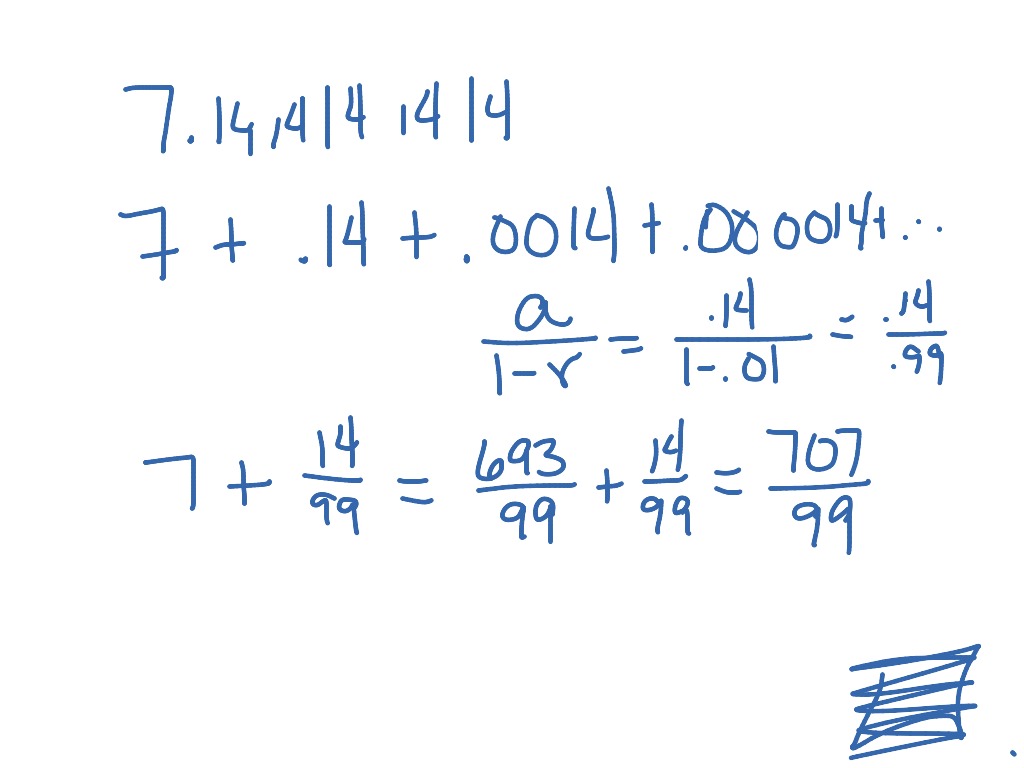 7.1414141414
7 + .14 + .0014 + .000014 + ...
a/(1-r) = .14/(1-.01) = .14/.99
7 + 14/99 = 693/99 + 14/99 = 707/99